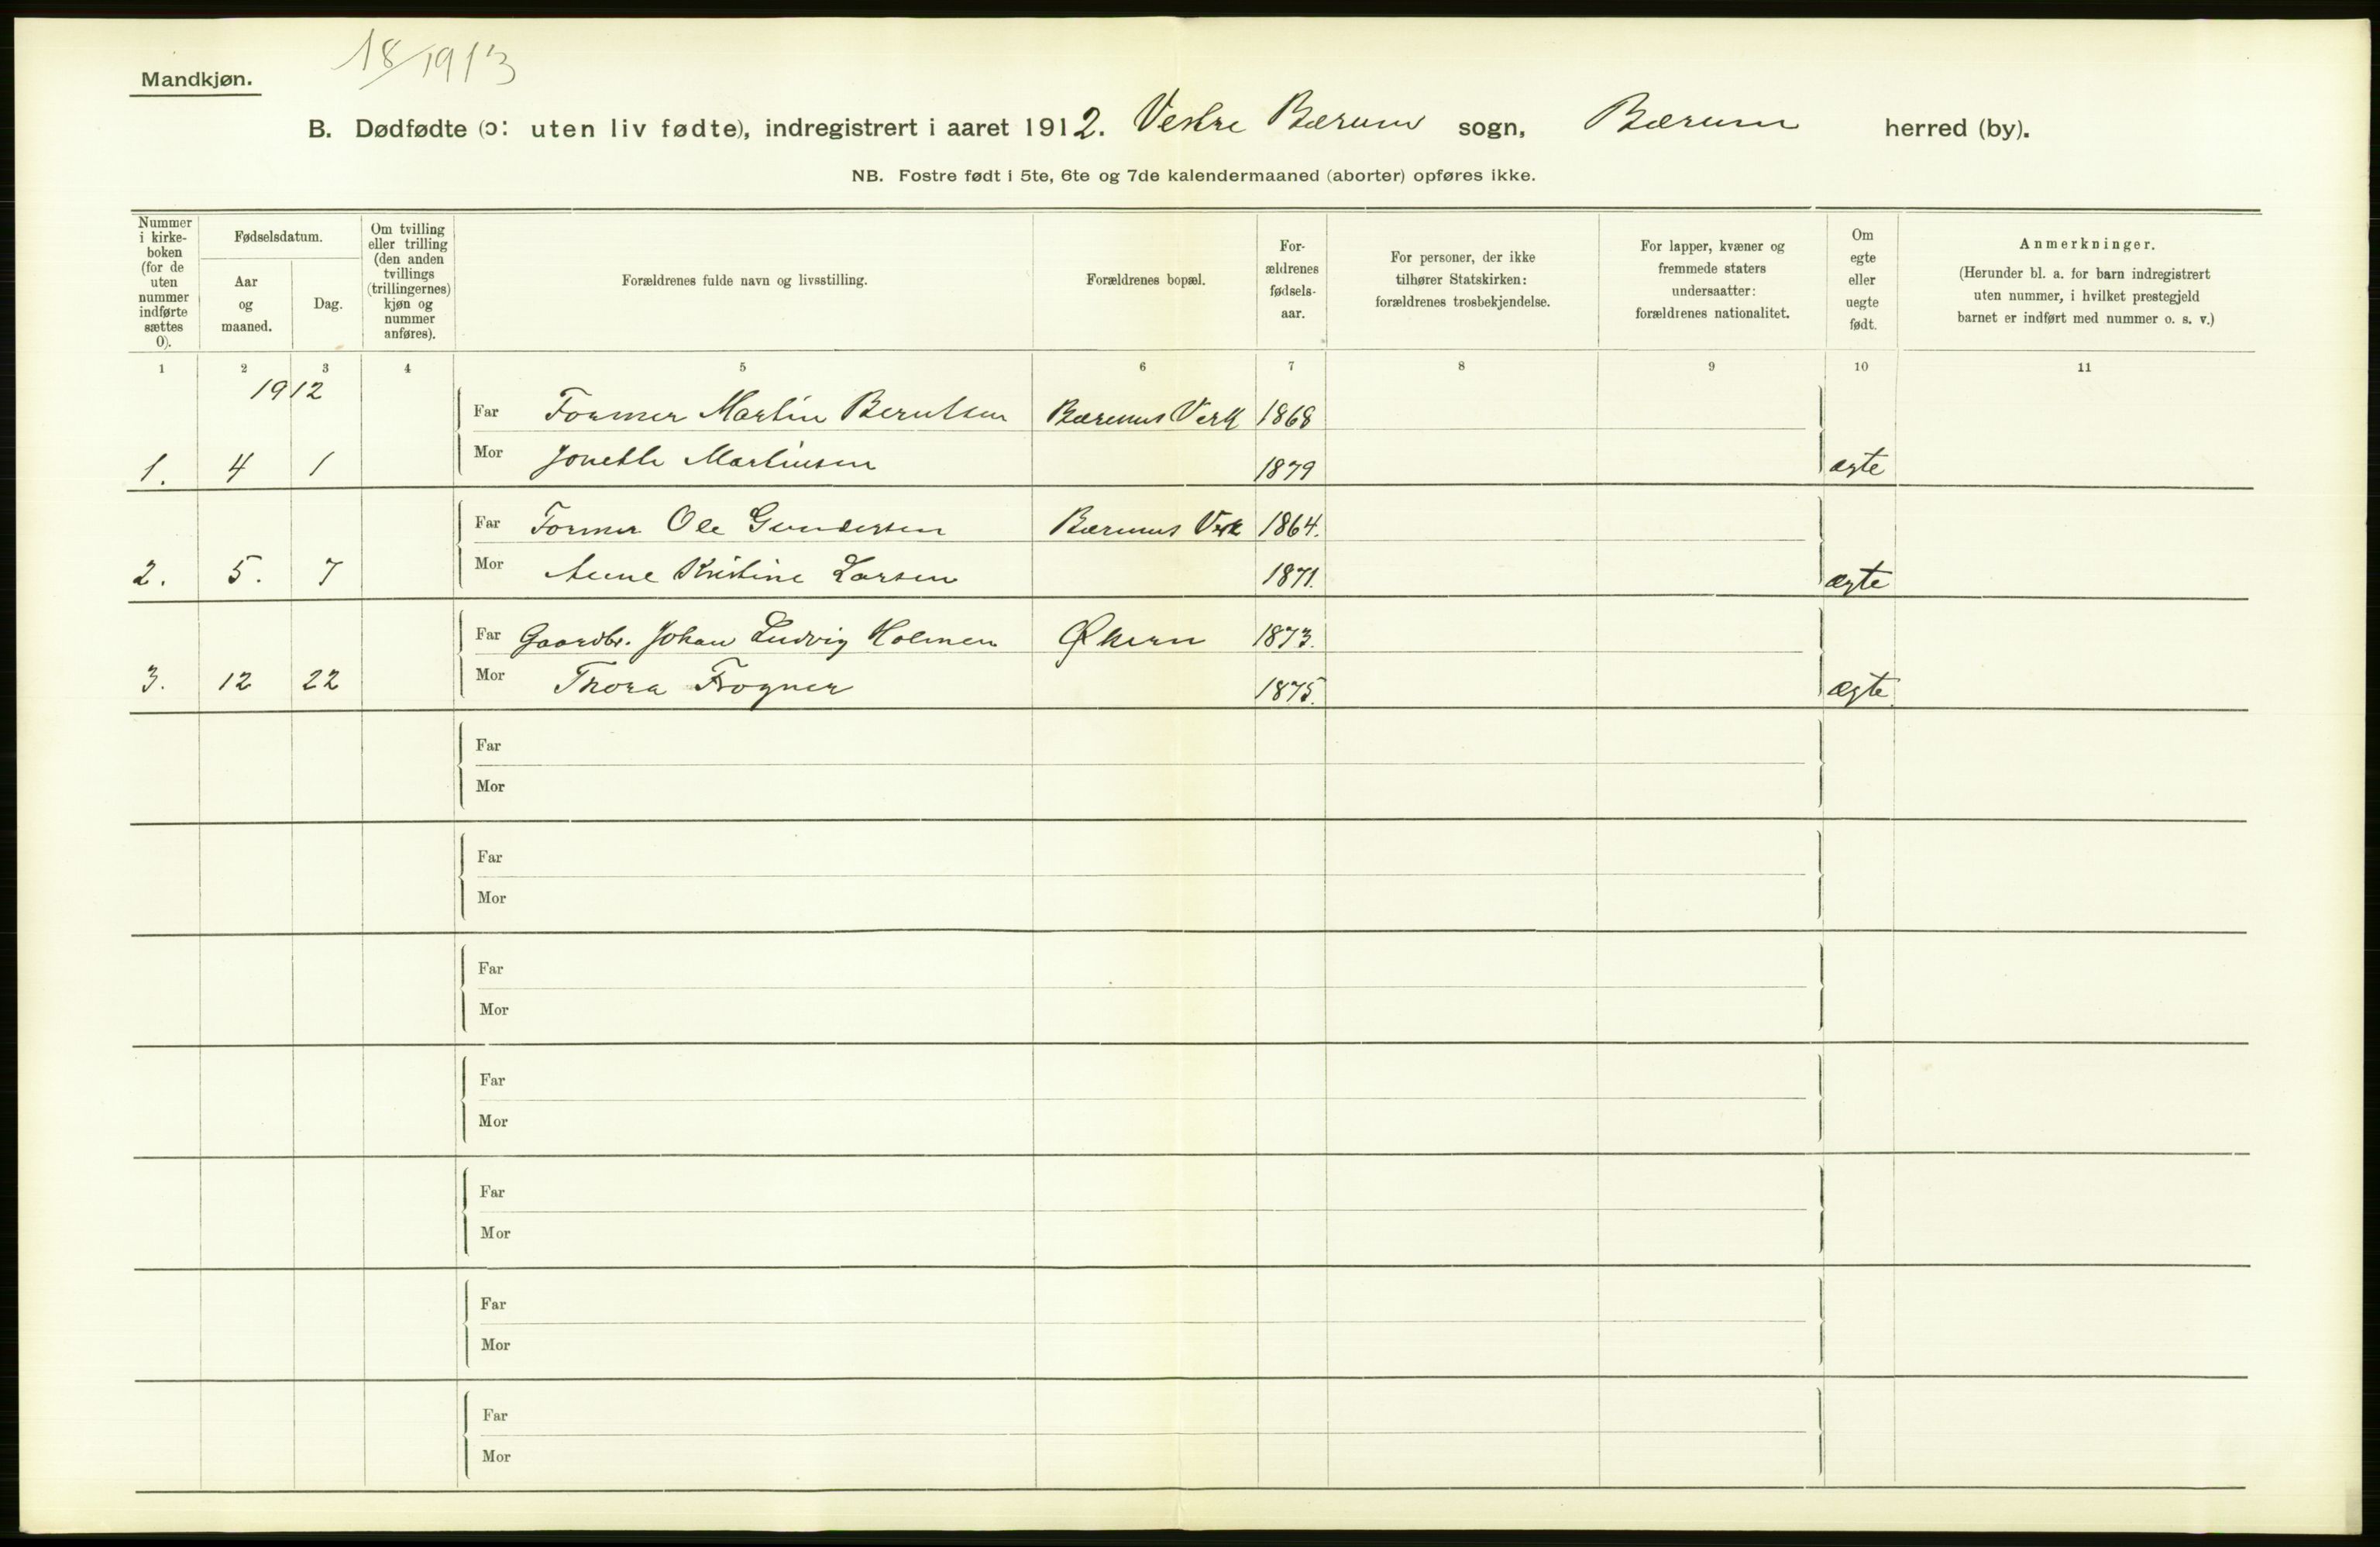 18/1913
Mandkjøn.
B. Dødfødte (ɔ: uten liv fødte), indregistrert i aaret 1912. Vestre Bærum sogn, Bærum herred (by).
NB. Fostre født i 5te, 6te og 7de kalendermaaned (aborter) opføres ikke.
Nummer
i kirke-
boken
(for de
uten
nummer
indførte
sættes
0).
Fødselsdatum.
Aar
og
maaned.
Dag.
Om tvilling
eller trilling
(den anden
tvillings
(trillingernes)
kjøn og
nummer
anføres).
Forældrenes fulde navn og livsstilling.
Forældrenes bopæl.
For-
ældrenes
fødsels-
aar.
For personer, der ikke
tilhører Statskirken:
forældrenes trosbekjendelse.
For lapper, kvæner og
fremmede staters
undersaatter:
forældrenes nationalitet.
Om
egte
eller
uegte
født.
Anmerkninger.
(Herunder bl. a. for barn indregistrert
uten nummer, i hvilket prestegjeld
barnet er indført med nummer o. s. v.)
1 2 3 4 5 6 7 8 9 10 11
1912
Far Former Martin Berntsen Bærums Verk 1868
1. 4 1 Mor Jonette Martinsen 1879 ægte
Far Former Ole Gundersen Bærums Verk 1864.
2. 5. 7 Mor Anne Kristine Larsen 1871. ægte
Far Gaardbr. Johan Ludvig Holmen Økern 1873.
3. 12 22 Mor Thora Frogner 1875. ægte
Far
Mor
Far
Mor
Far
Mor
Far
Mor
Far
Mor
Far
Mor
Far
Mor